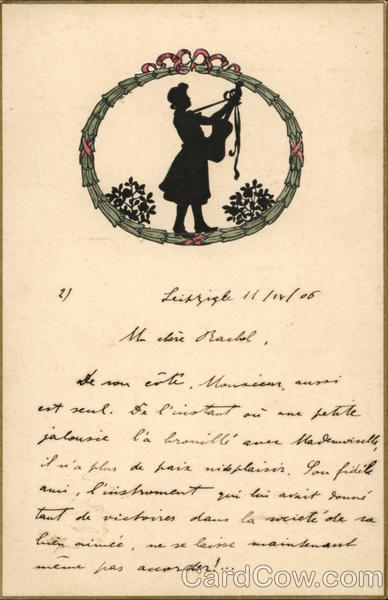 2) Leipzig le 11/IV/06
Ma chère Rachel,
De son côté, Monsieur aussi
est seul. De l'instant où une petite
jalousie l'a brouillé avec Mademoiselle,
il n'a plus de paix ni de plaisir. Son fidèle
ami, l'instrument qui lui avait donné
tant de victoires dans la societé de sa
bien aimée, ne se laisse maintenant
même pas accorder!...
CardCow.com